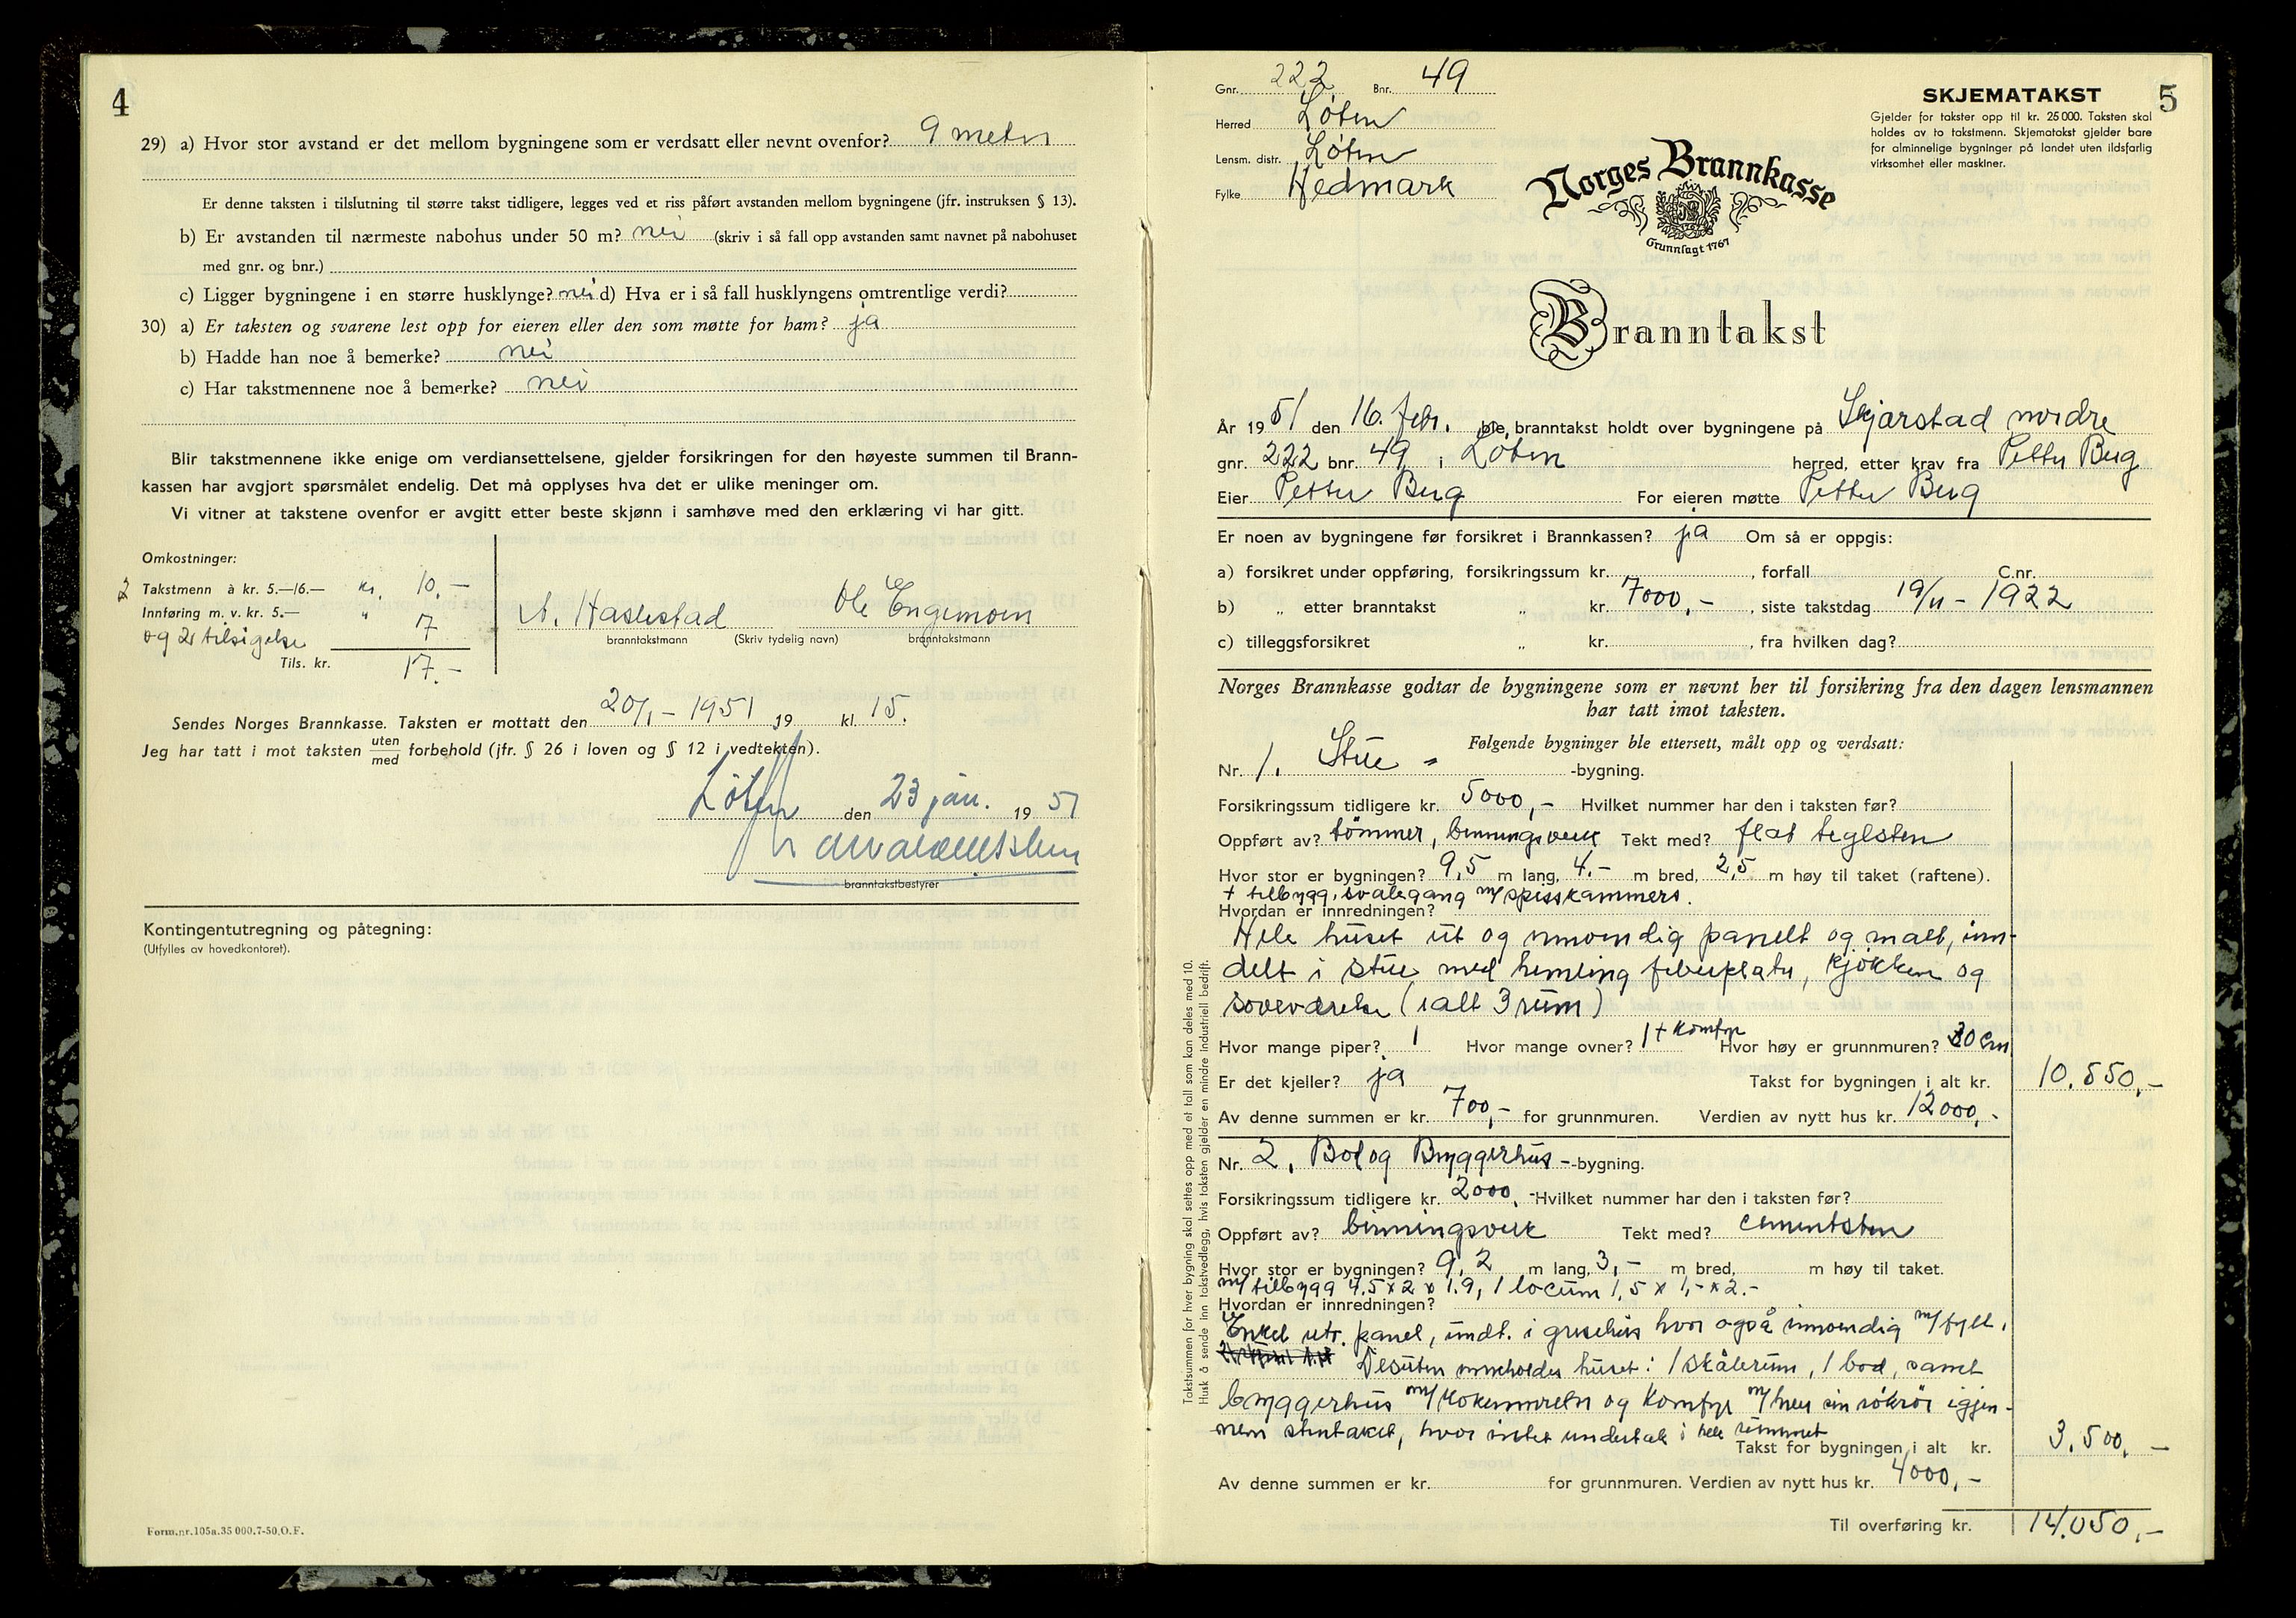 4
29) a) Hvor stor avstand er det mellom bygningene som er verdsatt eller nevnt ovenfor? 9 meter
Er denne taksten i tilslutning til større takst tidligere, legges ved et riss påført avstanden mellom bygningene (jfr. instruksen § 13).
b) Er avstanden til nærmeste nabohus under 50 m? nei (skriv i så fall opp avstanden samt navnet på nabohuset
med gnr. og bnr.)
c) Ligger bygningene i en større husklynge? nei d) Hva er i så fall husklyngens omtrentlige verdi?
30) a) Er taksten og svarene lest opp for eieren eller den som møtte for ham? ja
b) Hadde han noe å bemerke? nei
c) Har takstmennene noe å bemerke? nei
Blir takstmennene ikke enige om verdiansettelsene, gjelder forsikringen for den høyeste summen til Brann-
kassen har avgjort spørsmålet endelig. Det må opplyses hva det er ulike meninger om.
Vi vitner at takstene ovenfor er avgitt etter beste skjønn i samhøve med den erklæring vi har gitt.
Omkostninger:
2 Takstmenn à kr. 5.—/6.— kr. 10.-
Innføring m. v. kr. 5.— " 7
og 2 tilsigelse
Tils. kr. 17.-
A. Haslestad Ole Engemoen
branntakstmann (Skriv tydelig navn) branntakstmann
Sendes Norges Brannkasse. Taksten er mottatt den 20/1 - 1951 19 kl. 15.
Jeg har tatt i mot taksten uten/med forbehold (jfr. § 26 i loven og § 12 i vedtekten).
Løten den 23 jan. 19 51
branntakstbestyrer
Kontingentutregning og påtegning:
(Utfylles av hovedkontoret).
Form.nr.105a.35 000.7-50.O.F.
Gnr. 222 Bnr. 49
Herred Løten
Lensm. distr. Løten
Fylke Hedmark
SKJEMATAKST 5
Gjelder for takster opp til kr. 25 000. Taksten skal
holdes av to takstmenn. Skjematakst gjelder bare
for alminnelige bygninger på landet uten ildsfarlig
virksomhet eller maskiner.
Norges Brannkasse
Grunnlagt 1767
Branntakst
År 19 51 den 16. febr. ble branntakst holdt over bygningene på Skjarstad nordre
gnr. 222 bnr. 49 i Løten herred, etter krav fra Petter Berg
Eier Petter Berg For eieren møtte Petter Berg
Er noen av bygningene før forsikret i Brannkassen? ja Om så er oppgis:
a) forsikret under oppføring, forsikringssum kr. , forfall C.nr.
b) „ etter branntakst „ kr. 7000,- , siste takstdag 19/11 - 1922
c) tilleggsforsikret „ kr. , fra hvilken dag?
Norges Brannkasse godtar de bygningene som er nevnt her til forsikring fra den dagen lensmannen
har tatt imot taksten.
Følgende bygninger ble ettersett, målt opp og verdsatt:
Nr. 1. Stue - -bygning.
Forsikringssum tidligere kr. 5000,- Hvilket nummer har den i taksten før?
Oppført av? tömmer, binningsverk Tekt med? flat teglsten
Hvor stor er bygningen? 9,5 m lang, 4,- m bred, 2,5 m høy til taket (raftene).
+ tilbygg, svalegang m/spisskammers.
Hvordan er innredningen?
Hele huset ut og innvendig panelt og malt, inn-
delt i stue med himling fiberplater, kjökken og
soveværelse (ialt 3 rum)
Hvor mange piper? 1 Hvor mange ovner? 1 + komfyr Hvor høy er grunnmuren? 30 cm
Er det kjeller? ja Takst for bygningen i alt kr. 10.550,-
Av denne summen er kr. 700,- for grunnmuren. Verdien av nytt hus kr. 12000,-
Nr. 2. Bod og Bryggerhus -bygning.
Forsikringssum tidligere kr. 2000,- Hvilket nummer har den i taksten før?
Oppført av? binningsverk Tekt med? cementsten
Hvor stor er bygningen? 9,2 m lang, 3,- m bred, m høy til taket.
m/ tilbygg 4.5 x 2 x 1.9, 1 locum 1,5 x 1,- x 2.-
Hvordan er innredningen?
Enkel utv. panel, undt. i grisehus hvor også innvendig m/fyll.
Desuten inneholder huset: 1 skålerum, 1 bod, samt
bryggerhus m/kokemureln og komfyr m/hver sin rökrör igjen-
nem stentaket, hvor intet undertak i hele rummet
Takst for bygningen i alt kr. 3.500,-
Av denne summen er kr. for grunnmuren. Verdien av nytt hus kr. 4000,-
Til overføring kr. 14.050,-
Takstsummen for hver bygning skal settes opp med et tall som kan deles med 10.
Husk å sende inn takstvedlegg, hvis taksten gjelder en mindre industriell bedrift.